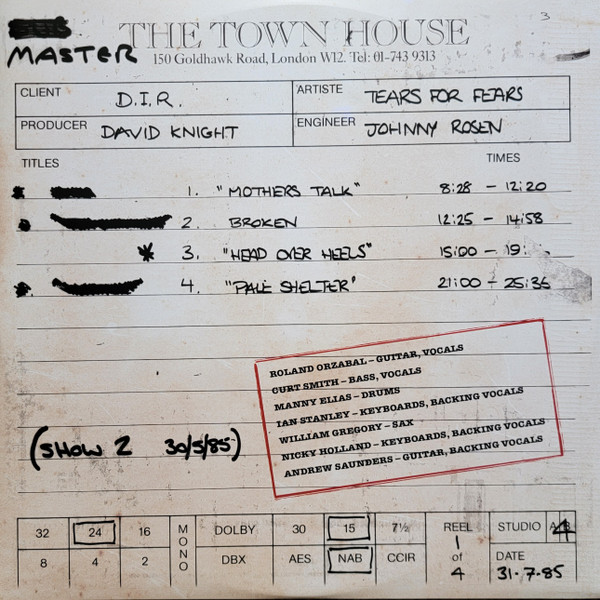 3
THE TOWN HOUSE
MASTER
150 Goldhawk Road, London W12. Tel: 01-743 9313
CLIENT D.I.R. ARTISTE TEARS FOR FEARS
PRODUCER DAVID KNIGHT ENGINEER JOHNNY ROSEN
TITLES TIMES
1. "MOTHERS TALK" 8:28 – 12:20
2. BROKEN 12:25 – 14:58
* 3. "HEAD OVER HEELS" 15:00 – 19:
4. "PALE SHELTER" 21:00 – 25:36
ROLAND ORZABAL – GUITAR, VOCALS
CURT SMITH – BASS, VOCALS
MANNY ELIAS – DRUMS
IAN STANLEY – KEYBOARDS, BACKING VOCALS
WILLIAM GREGORY – SAX
NICKY HOLLAND – KEYBOARDS, BACKING VOCALS
ANDREW SAUNDERS – GUITAR, BACKING VOCALS
(SHOW 2 30/5/85)
32 24 16 MONO DOLBY 30 15 7½ REEL 1 of 4 STUDIO 4
8 4 2 DBX AES NAB CCIR DATE 31·7·85